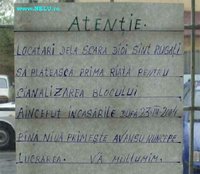 www.NELU.ro
ATENȚIE.
LOCATARI DELA SCARA 3ICI SÎNT RUGAȚI
SĂ PLATEASCĂ PRIMA RIATĂ PENTRU
CIANALIZAREA BLOCULUI
AÎNCEPUT INCASĂRILE DUPĂ 23-III-2004
PINA NIUĂ PRIMEȘTE AVANSU NUÎNCEPE
LUCRAREA. VĂ MULLUMIM.